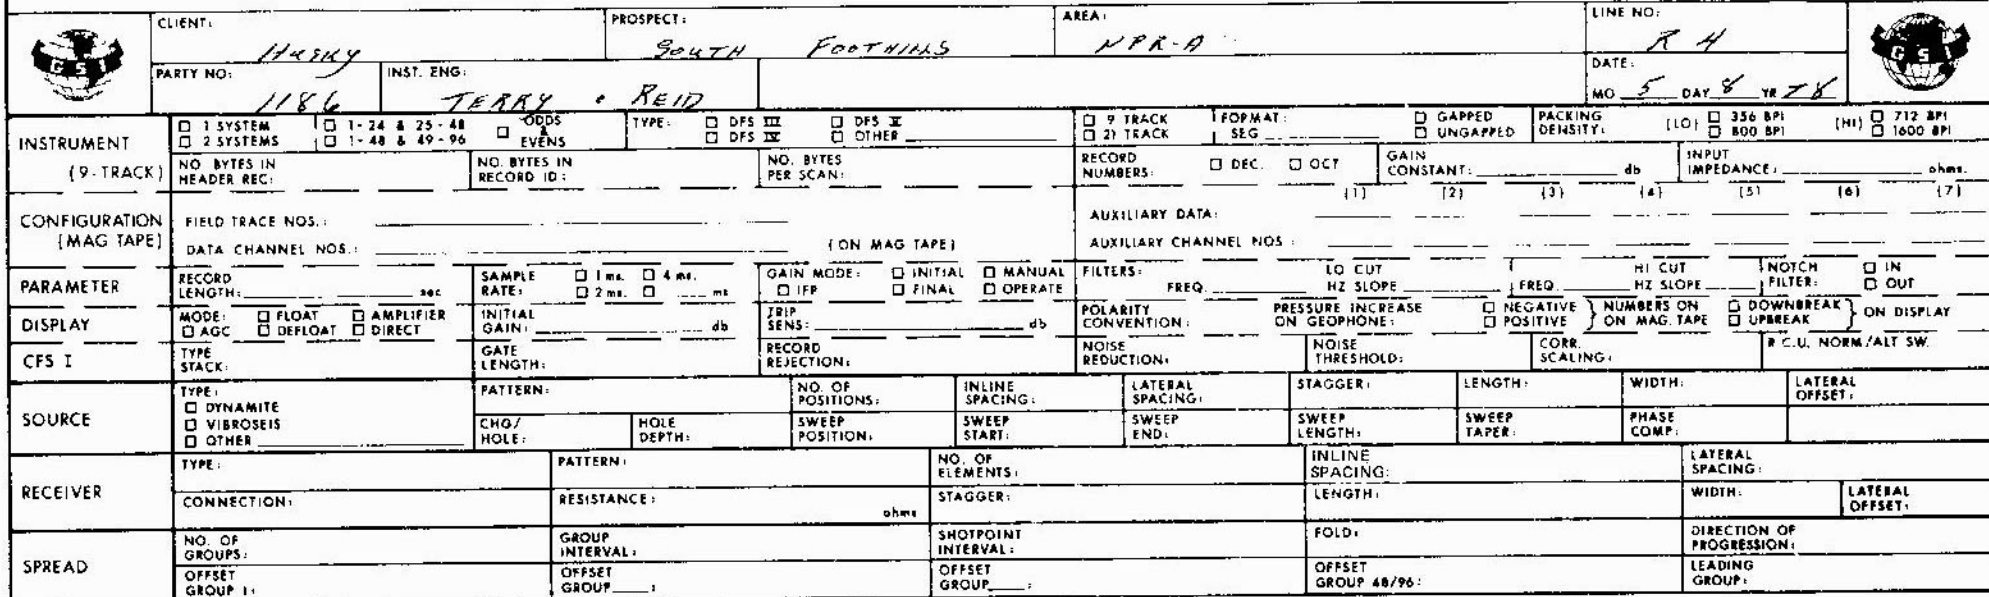 CLIENT: Husky PROSPECT: SOUTH FOOTHILLS AREA: NPR-A LINE NO: R 4
GSI GSI
PARTY NO: 1186 INST. ENG: TERRY . REID DATE: MO 5 DAY 8 YR 78
INSTRUMENT (9-TRACK)
☐ 1 SYSTEM ☐ 1-24 & 25-48 ☐ ODDS & EVENS TYPE: ☐ DFS III ☐ DFS V ☐ 9 TRACK FORMAT: ☐ GAPPED PACKING DENSITY: (LO) ☐ 356 BPI (HI) ☐ 712 BPI
☐ 2 SYSTEMS ☐ 1-48 & 49-96 ☐ DFS IV ☐ OTHER ☐ 21 TRACK SEG ☐ UNGAPPED ☐ 800 BPI ☐ 1600 BPI
NO. BYTES IN HEADER REC: NO. BYTES IN RECORD ID: NO. BYTES PER SCAN: RECORD NUMBERS: ☐ DEC. ☐ OCT GAIN CONSTANT: db INPUT IMPEDANCE: ohms.
CONFIGURATION (MAG TAPE)
(1) (2) (3) (4) (5) (6) (7)
FIELD TRACE NOS.: AUXILIARY DATA:
DATA CHANNEL NOS.: (ON MAG TAPE) AUXILIARY CHANNEL NOS:
PARAMETER
RECORD LENGTH: sec SAMPLE RATE: ☐ 1 ms. ☐ 4 ms. ☐ 2 ms. ☐ ms GAIN MODE: ☐ INITIAL ☐ MANUAL ☐ IFP ☐ FINAL ☐ OPERATE FILTERS: FREQ. LO CUT HZ SLOPE FREQ. HI CUT HZ SLOPE NOTCH FILTER: ☐ IN ☐ OUT
DISPLAY
MODE: ☐ FLOAT ☐ AMPLIFIER ☐ AGC ☐ DEFLOAT ☐ DIRECT INITIAL GAIN: db TRIP SENS: db POLARITY CONVENTION: PRESSURE INCREASE ON GEOPHONE: ☐ NEGATIVE ☐ POSITIVE } NUMBERS ON ON MAG. TAPE ☐ DOWNBREAK ☐ UPBREAK } ON DISPLAY
CFS I
TYPE STACK: GATE LENGTH: RECORD REJECTION: NOISE REDUCTION: NOISE THRESHOLD: CORR. SCALING: R.C.U. NORM./ALT SW.
SOURCE
TYPE: ☐ DYNAMITE ☐ VIBROSEIS ☐ OTHER
PATTERN: NO. OF POSITIONS: INLINE SPACING: LATERAL SPACING: STAGGER: LENGTH: WIDTH: LATERAL OFFSET:
CHG/ HOLE: HOLE DEPTH: SWEEP POSITION: SWEEP START: SWEEP END: SWEEP LENGTH: SWEEP TAPER: PHASE COMP:
RECEIVER
TYPE: PATTERN: NO. OF ELEMENTS: INLINE SPACING: LATERAL SPACING:
CONNECTION: RESISTANCE: ohms STAGGER: LENGTH: WIDTH: LATERAL OFFSET:
SPREAD
NO. OF GROUPS: GROUP INTERVAL: SHOTPOINT INTERVAL: FOLD: DIRECTION OF PROGRESSION:
OFFSET GROUP 1: OFFSET GROUP : OFFSET GROUP : OFFSET GROUP 48/96: LEADING GROUP: